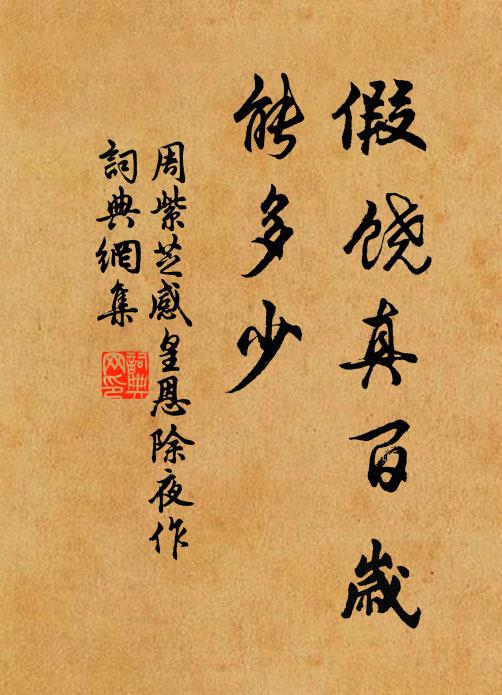 假饶真百歲
能多少
周紫芝感皇恩除夜作
詞典網集
詞典
网印